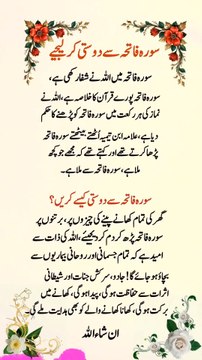 سورہ فاتحہ سے دوستی کر لیجیے
سورہ فاتحہ میں اللہ نے شفا رکھی ہے،
سورہ فاتحہ پورے قرآن کا خلاصہ ہے، اللہ نے
نماز کی ہر رکعت میں سورہ فاتحہ کو پڑھنے کا حکم
دیا ہے، علامہ ابن تیمیہ اُٹھتے بیٹھتے سورہ فاتحہ
پڑھا کرتے تھے اور کہتے تھے کہ مجھے جو کچھ
ملا ہے، سورہ فاتحہ سے ملا ہے۔
سورہ فاتحہ سے دوستی کیسے کریں؟
گھر کی تمام کھانے پینے کی چیزوں پر، برتنوں پر
سورہ فاتحہ پڑھ کر دم کر دیجئے، اللہ کی ذات سے
امید ہے کہ تمام جسمانی اور روحانی بیماریوں سے
بچاؤ ہو جائے گا! جادو، سرکش جنات اور شیطانی
اثرات سے حفاظت ہو گی، پیدا ہو گی، کھانے میں
برکت ہو گی، کھانا کھانے والے کو بھی ہدایت ملے گی
ان شاء اللہ